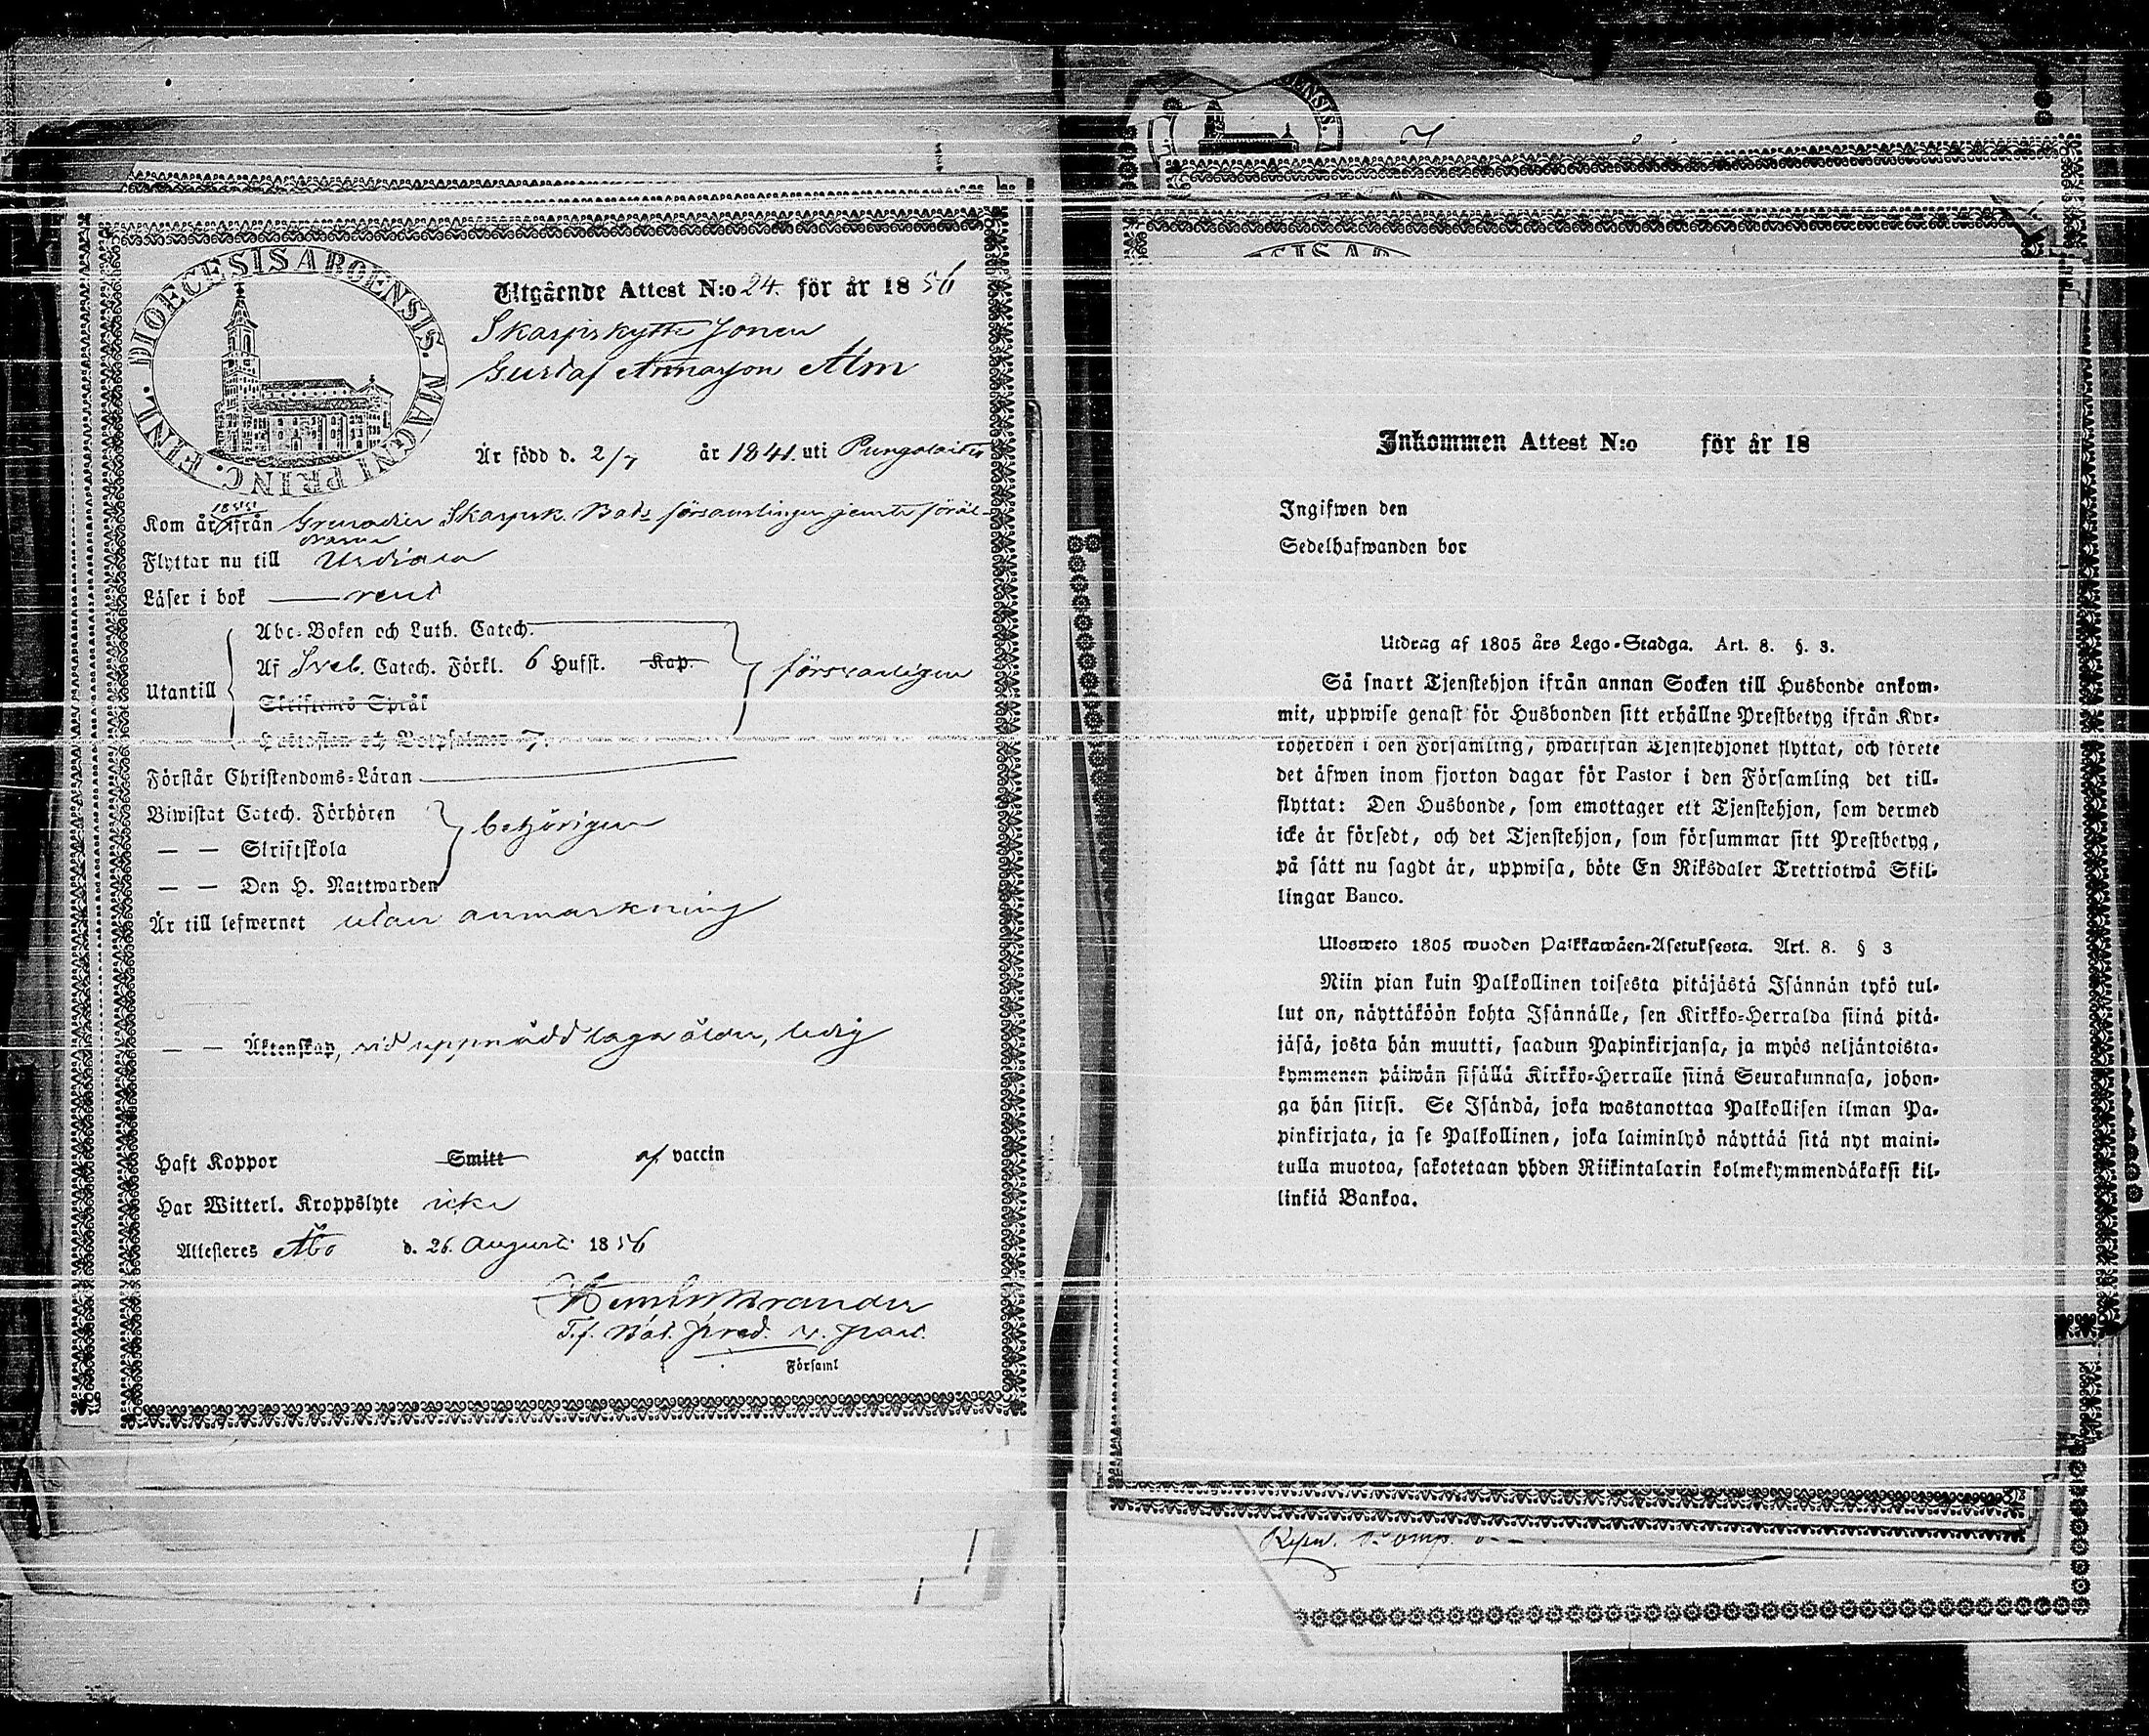 DIOECESIS ABOENSIS. MAGNI PRINC. FINL.
Utgående Attest N:o 24. för år 1856
Skarpskytte Sonen
Gustaf Annasson Alm
Är född d. 2/7 år 1841. uti Pungalaitio
1855
Kom år ifrån Grenadier Skarpsk. Bats församlingen jemte föräl-
drarne
Flyttar nu till Urdiala
Läser i bok — rent
Utantill
Abc-Boken och Luth. Catech.
Af Sveb. Catech. Förkl. 6 Hufst. Kap.
Skriftenes Språk
Hustaflan och Botpsalmer 7.
försvarligen
Förstår Christendoms-Läran
Biwistat Catech. Förhören
— — Skriftskola
— — Den H. Nattwarden
behörigen
Är till lefwernet utan anmärkning
— — Äktenskap, vid uppnådd laga ålder, ledig
Haft Koppor Smitt af vaccin
Har Witterl. Kroppslyte icke
Attesteres Åbo d. 26. Augusti 1856
T.f. Bat. pred. v. past.
Församl
ENSIS.
SIS AB
Inkommen Attest N:o för år 18
Ingifwen den
Sedelhafwanden bor
Utdrag af 1805 års Lego-Stadga. Art. 8. §. 3.
Så snart Tjenstehjon ifrån annan Socken till Husbonde ankom-
mit, uppwise genast för Husbonden sitt erhållne Prestbetyg ifrån Kyr-
koherden i den Församling, hwarifrån Tjenstehjonet flyttat, och förete
det äfwen inom fjorton dagar för Pastor i den Församling det till-
flyttat: Den Husbonde, som emottager ett Tjenstehjon, som dermed
icke är försedt, och det Tjenstehjon, som försummar sitt Prestbetyg,
på sätt nu sagdt är, uppwisa, böte En Riksdaler Trettiotwå Skil-
lingar Banco.
Ulosweto 1805 wuoden Palkkawäen-Asetuksesta. Art. 8. § 3
Niin pian kuin Palkollinen toisesta pitäjästä Isännän tykö tul-
lut on, näyttäköön kohta Isännälle, sen Kirkko-Herralda siinä pitä-
jäsä, josta hän muutti, saadun Papinkirjansa, ja myös neljäntoista-
kymmenen päiwän sisällä Kirkko-Herralle siinä Seurakunnasa, johon-
ga hän siirsi. Se Isändä, joka wastanottaa Palkollisen ilman Pa-
pinkirjata, ja se Palkollinen, joka laiminlyö näyttää sitä nyt maini-
tulla muotoa, sakotetaan yhden Riikintalarin kolmekymmendäkaksi kil-
linkiä Bankoa.